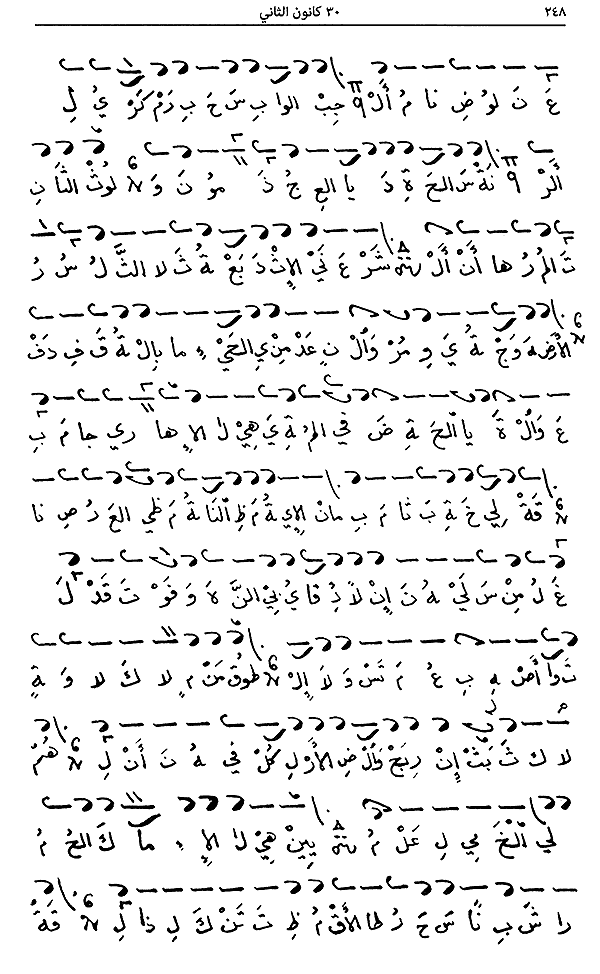 ٢٤٨ ٣٠ كانون الثاني
عَ نَ لوُ ضِ نا مُ أَلْ جِبْ الوا بِ سَ حَ بِ رَمْ كَرْ يُ لِ
أَلرْ نَةْ سَ الحَ ةِ دَ يا العِ جُ ذَ مو نَ وَ لوُثْ الثا نِ
تَ المُ رُ ها أَنْ أَلْ شَرْ عَ نَيْ الإِثْ دَ بَعْ ةُ ثَ لا الثَّ لُ سُ رُ
الأَ ضِ هَ وَجْ ةُ يَ وِ مُرْ وَالْ نِ عَدْ مِنْ يِ الحَيْ ءِ ما بِالْ ةُ قَ فِ دَفْ
عَ وَالْ ةَ يا الحَ ةِ ضَ في المُ ةِ يَ هِيْ لٰ الإِ ها ري جا مَ بِ
قَةْ لِي خَ ةِ بَ ثا مَ بِ مانْ الإِي ةُ مَ ظِ النا ةُ مَ ظي العَ رُ صِ نا
عَ لُ مِنْ سَ لَيْ هُ نَ إِنْ لأَ ذِ قا يُ بْيِ النَّ ةَ وَ فَوْ تَ قَدْ لَ
تَ وا أَضْ هِ بِ عُ مَ تَسْ وَ لا إِلْ طوُقْ مَنْ مِ لا كَ لا وَ ةٍ
لا كَ ثَ بَثْ إِنْ رِيعَ وَالْ ضِ الأَرْ لِ كُلْ في هُ نَ أَنْ لِ هُمُ
لي الْخَ مِي لِ عَلْ مُ بِينْ هِيْ لٰ الإِ ءِ ما كَ الحُ مُ
را شَ بِ نًا سَ حَ رُ طا الأَقْ مُ ظِ تَ تَنْ كَ لِ ذا لِ قَةُ